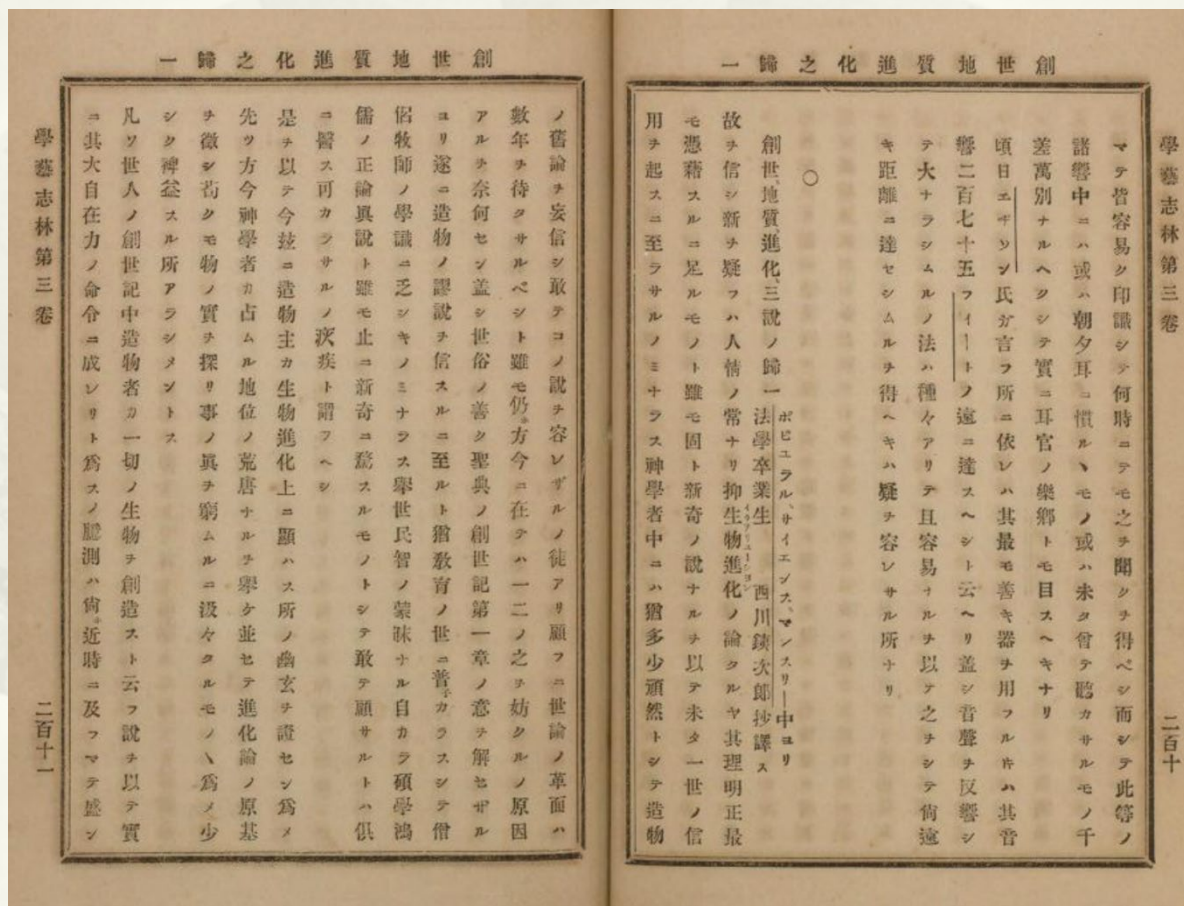 創世地質進化之歸一
學藝志林第三卷
二百十
マテ皆容易ク印識シテ何時ニテモ之ヲ聞クヲ得ベシ而シテ此等ノ
諸響中ニハ或ハ朝夕耳ニ慣ルヽモノ或ハ未タ曾テ聽カサルモノ千
差萬別ナルヘクシテ實ニ耳官ノ樂鄉トモ目スヘキナリ
頃日エヂソン氏ガ言フ所ニ依レハ其最モ善キ器ヲ用フル𪜈ハ其音
響二百七十五フイートノ遠ニ達スヘシト云ヘリ蓋シ音聲ヲ反響シ
テ大ナラシムルノ法ハ種々アリテ且容易ナルヲ以テ之ヲシテ尙遠
キ距離ニ達セシムルヲ得ヘキハ疑ヲ容レサル所ナリ
○
創世、地質、進化、三說ノ歸一
ポピユラル、サイエンス、マンスリー中ヨリ
法學卒業生 西川鉄次郎抄譯ス
故ヲ信シ新ヲ疑フハ人情ノ常ナリ抑生物進化ノ論タルヤ其理明正最
モ憑藉スルニ足ルモノト雖モ固ト新奇ノ說ナルヲ以テ未タ一世ノ信
用ヲ起スニ至ラサルノミナラス神學者中ニハ猶多少頑然トシテ造物
創世地質進化之歸一
ノ舊論ヲ妄信シ敢テコノ說ヲ容レザルノ徒アリ顧フニ世論ノ革面ハ
數年ヲ待タサルベシト雖モ仍ホ方今ニ在テハ一二ノ之ヲ妨クルノ原因
アルヲ奈何セン蓋シ世俗ノ善ク聖典ノ創世記第一章ノ意ヲ解セザル
ヨリ遂ニ造物ノ謬說ヲ信スルニ至ルト猶敎育ノ世ニ普子カラスシテ僧
侶牧師ノ學識ニ乏シキノミナラス舉世民智ノ蒙昧ナル自カラ碩學鴻
儒ノ正論眞說ト雖モ止ニ新奇ニ騖スルモノトシテ敢テ顧サルトハ俱
ニ醫ス可カラサルノ疾疾ト謂フヘシ
是ヲ以テ今玆ニ造物主カ生物進化上ニ顯ハス所ノ幽玄ヲ證セン爲メ
先ツ方今神學者カ占ムル地位ノ荒唐ナルヲ舉ケ並セテ進化論ノ原基
ヲ徵シ苟クモ物ノ實ヲ探リ事ノ眞ヲ窮ムルニ汲々タルモノヽ爲メ少
シク裨益スル所アラシメントス
凡ソ世人ノ創世記中造物者カ一切ノ生物ヲ創造スト云フ說ヲ以テ實
ニ其大自在力ノ命令ニ成レリト爲スノ臆測ハ尙ホ近時ニ及フマテ盛ン
學藝志林第三卷
二百十一